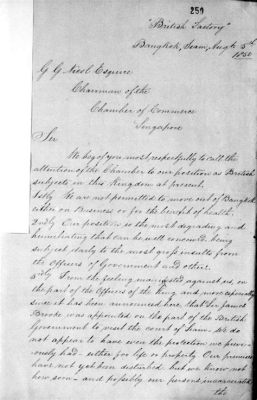 259
"British Factory"
Bangkok, Siam, Augt 5th
1850
G G Nicol Esquire
Chairman of the
Chamber of Commerce
Singapore
Sir
We beg of you most respectfully to call the
attention of the Chamber to our position as British
subjects in this Kingdom at present.
1stly We are not permitted to move out of Bangkok
either on Business or for the benefit of health.
2ndly Our position is the most degrading and
humiliating that can be well conceived being
subject daily to the most gross insults from
the Officers of Government and others.
3rdly From the feeling manifested against us, on
the part of the Officers of the King and more especially
since it has been announced here that Sir James
Brooke was appointed on the part of the British
Government to visit the court of Siam. We do
not appear to have even the protection we previ-
ously had - either for life or property. Our premises
have not yet been disturbed but we know not
how soon - and possibly our persons incarcerated
the